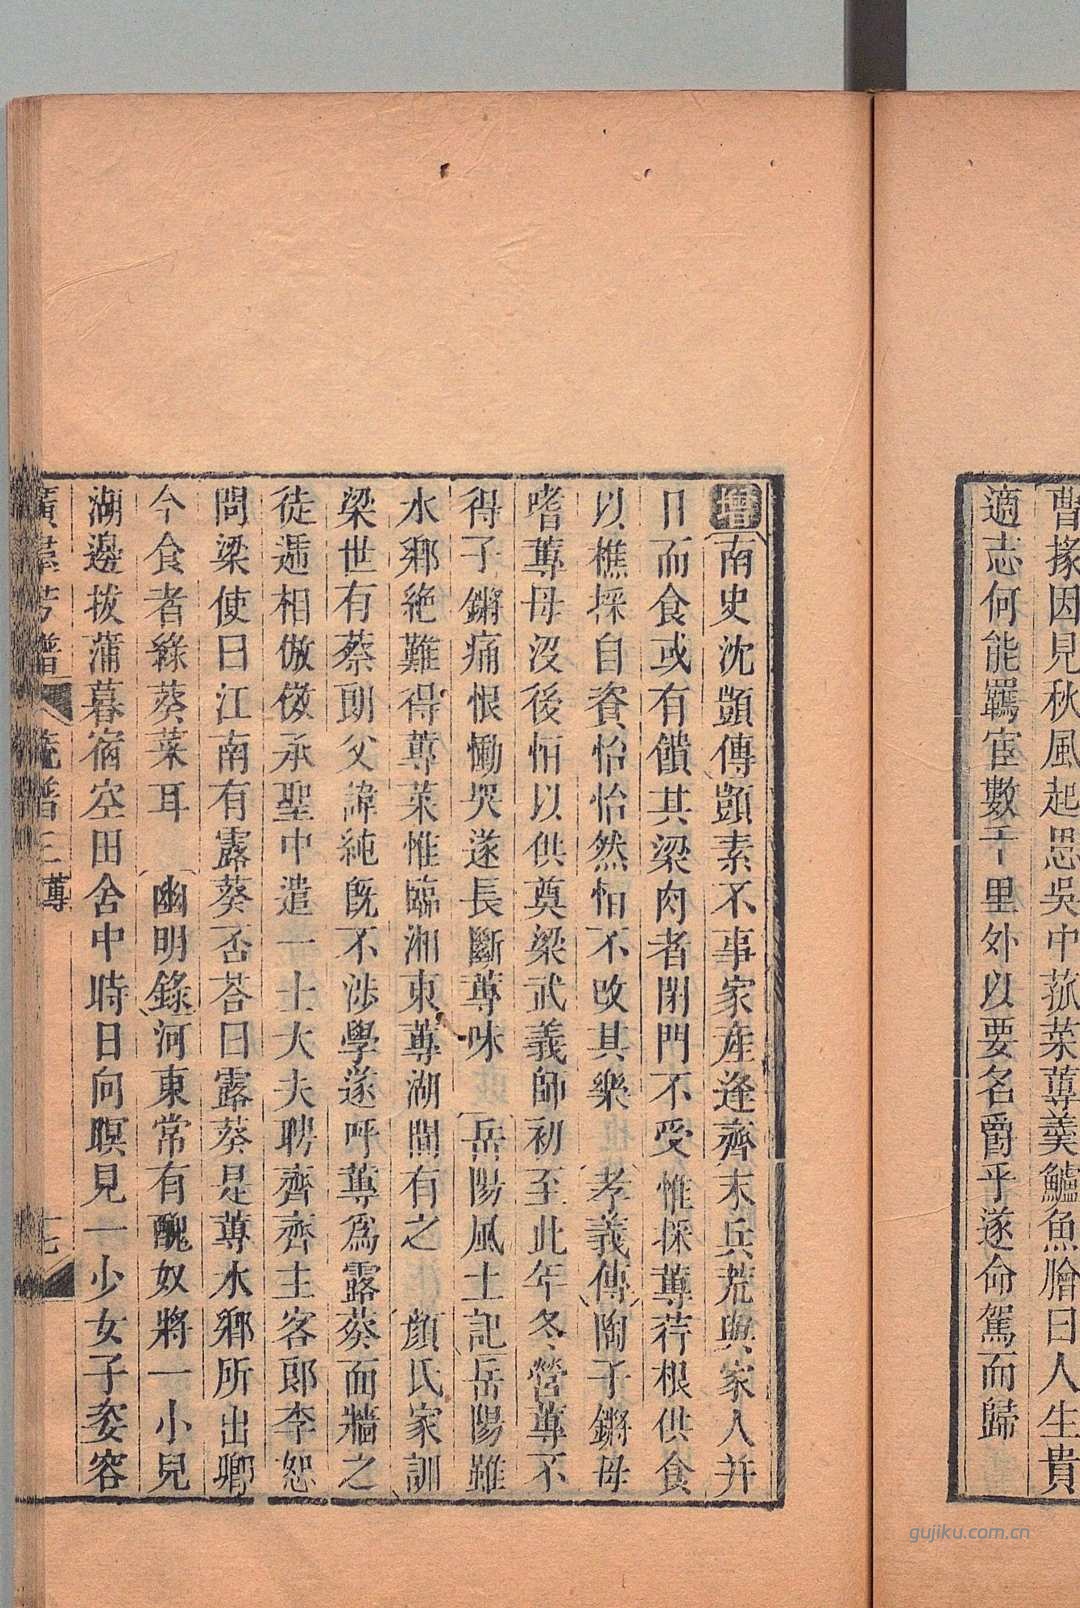 曹掾因見秋風起思吳中菰菜蓴羹鱸魚膾曰人生貴
適志何能羈宦數千里外以要名爵乎遂命駕而歸
增南史沈顗傳顗素不事家產逢齊末兵荒與家人并
日而食或有饋其梁肉者閉門不受惟採蓴荇根供食
以樵採自資怡怡然恒不改其樂 孝義傳陶子鏘母
嗜蓴母沒後恒以供奠梁武義師初至此年冬營蓴不
得子鏘痛恨慟哭遂長斷蓴味 岳陽風土記岳陽雖
水鄉絶難得蓴菜惟臨湘東蓴湖間有之 顏氏家訓
梁世有蔡朗父諱純旣不涉學遂呼蓴爲露葵面牆之
徒遞相倣傚承聖中遣一士大夫聘齊齊主客郎李恕
問梁使曰江南有露葵否荅曰露葵是蓴水鄉所出卿
今食者綠葵菜耳 幽明錄河東常有醜奴將一小兒
湖邊拔蒲暮宿空田舍中時日向暝見一少女子姿容
廣羣芳譜 蔬譜三 蓴 十七
gujiku.com.cn